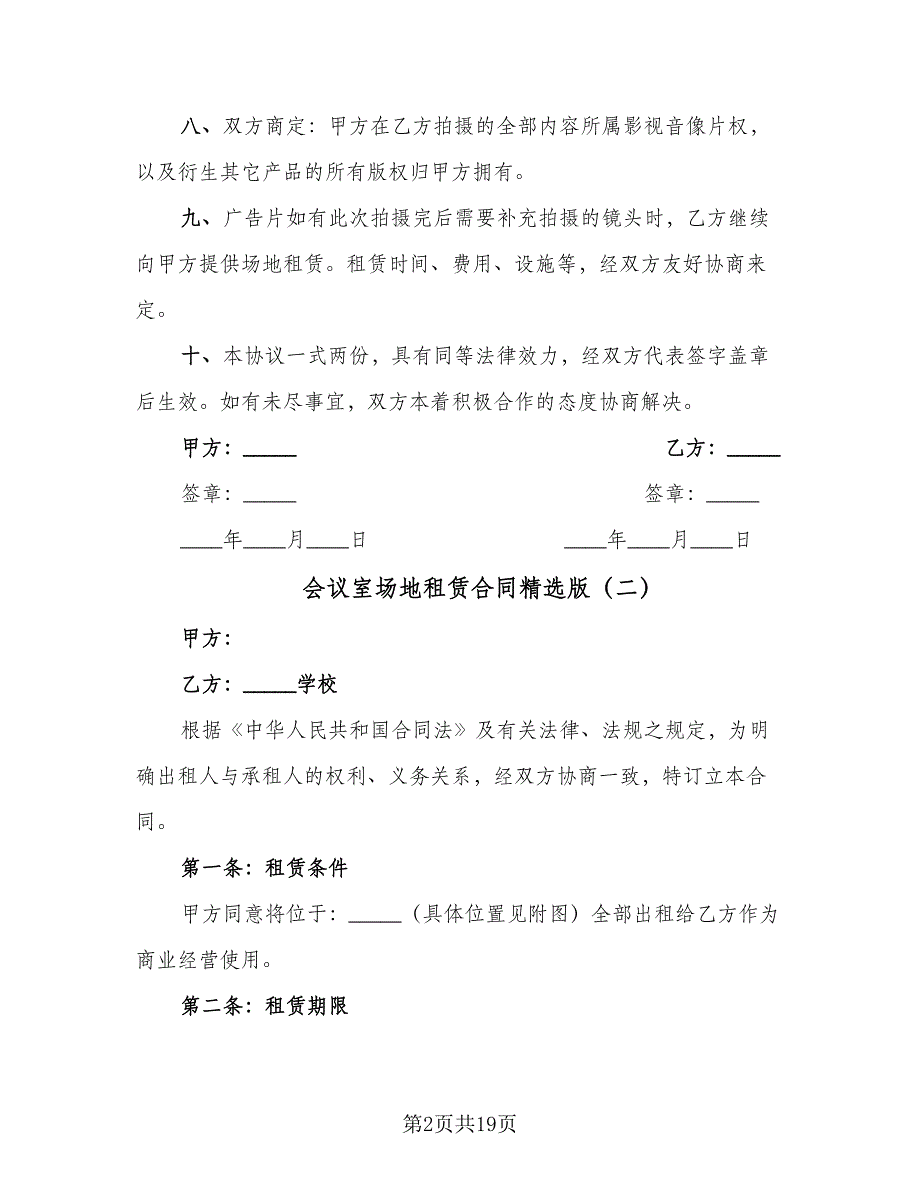 八、双方商定：甲方在乙方拍摄的全部内容所属影视音像片权，
以及衍生其它产品的所有版权归甲方拥有。
九、广告片如有此次拍摄完后需要补充拍摄的镜头时，乙方继续
向甲方提供场地租赁。租赁时间、费用、设施等，经双方友好协商来
定。
十、本协议一式两份，具有同等法律效力，经双方代表签字盖章
后生效。如有未尽事宜，双方本着积极合作的态度协商解决。
甲方：_____ 乙方：_____
签章：_____ 签章：_____
____年____月____日 ____年____月____日
会议室场地租赁合同精选版（二）
甲方：
乙方：_____学校
根据《中华人民共和国合同法》及有关法律、法规之规定，为明
确出租人与承租人的权利、义务关系，经双方协商一致，特订立本合
同。
第一条：租赁条件
甲方同意将位于：_____（具体位置见附图）全部出租给乙方作为
商业经营使用。
第二条：租赁期限
第2页共19页